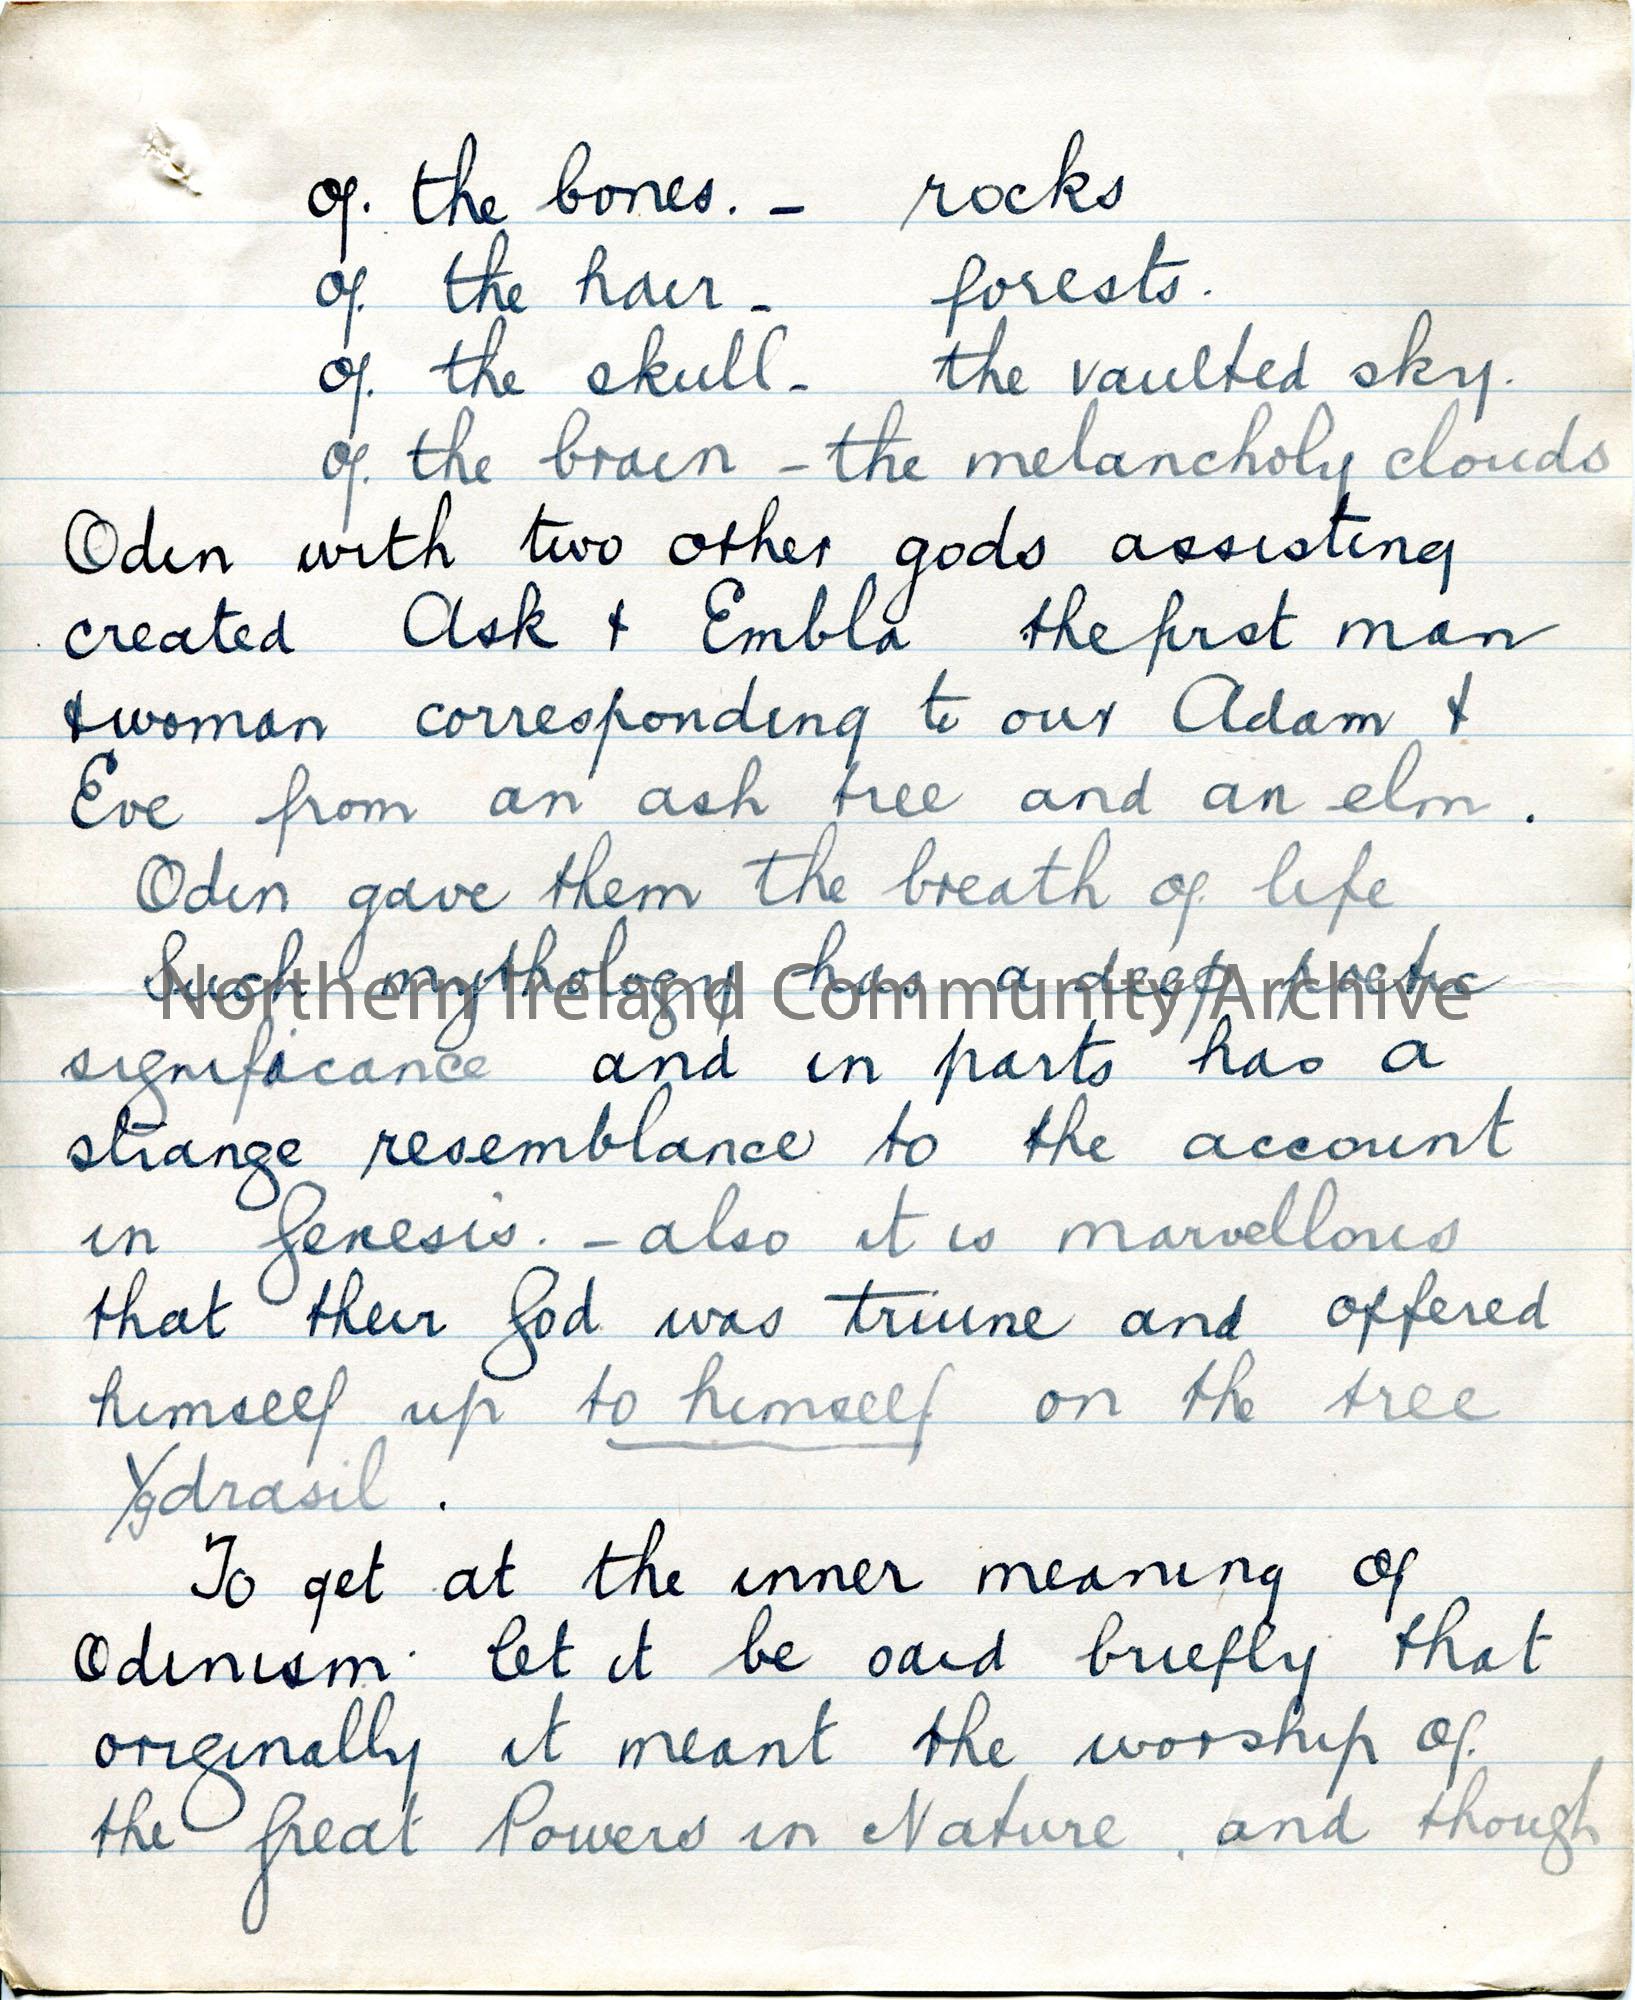 of. the bones. - rocks
of. the hair - forests.
of. the skull - the vaulted sky.
of. the brain - the melancholy clouds
Odin with two other gods assisting
created Ask & Embla the first man
& woman corresponding to our Adam &
Eve from an ash tree and an elm.
Odin gave them the breath of life
Such mythology has a deep poetic
Northern Ireland Community Archive
significance and in parts has a
strange resemblance to the account
in Genesis. - also it is marvellous
that their God was triune and offered
himself up to himself on the tree
Ygdrasil.
To get at the inner meaning of
Odinism. let it be said briefly that
originally it meant the worship of.
the Great Powers in Nature, and though